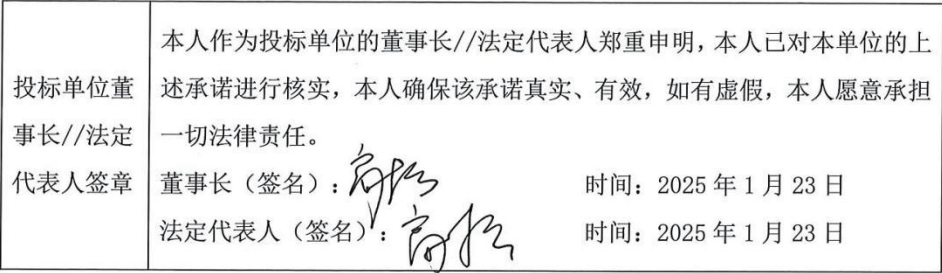 投标单位董
事长//法定
代表人签章
本人作为投标单位的董事长//法定代表人郑重申明,本人已对本单位的上
述承诺进行核实,本人确保该承诺真实、有效,如有虚假,本人愿意承担
一切法律责任。
董事长(签名): 时间:2025年1月23日
法定代表人(签名): 时间:2025年1月23日